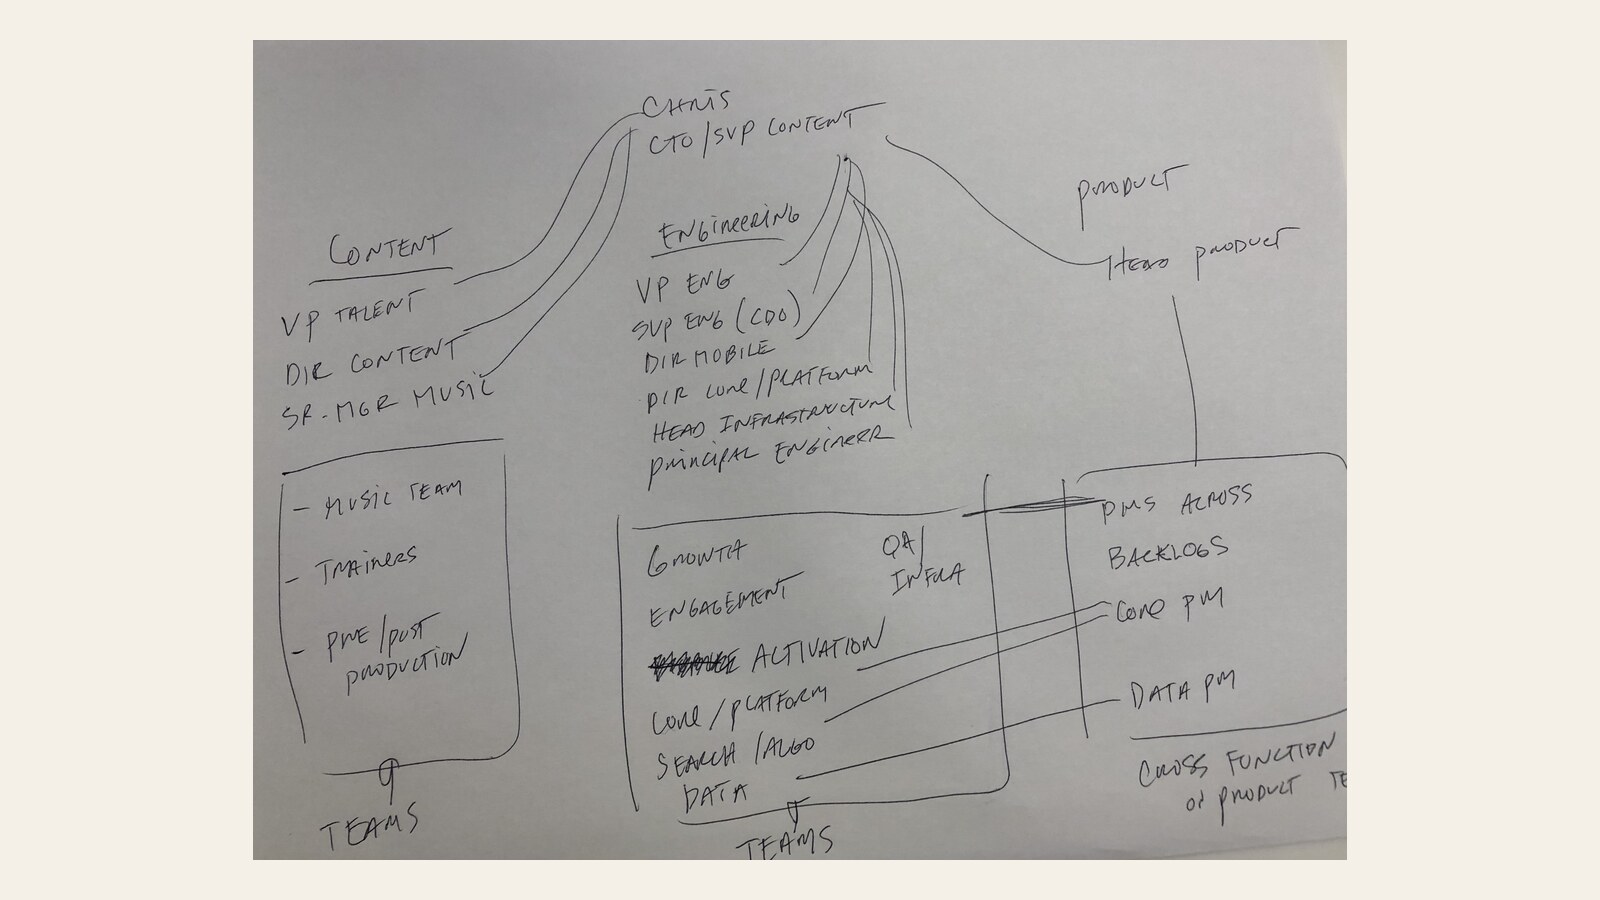 CHRIS
CTO/SVP CONTENT
CONTENT
VP TALENT
DIR CONTENT
SR-MGR MUSIC
- MUSIC TEAM
- TRAINERS
- PRE/POST
PRODUCTION
TEAMS
ENGINEERING
VP ENG
SVP ENG (CDO)
DIR MOBILE
DIR CORE/PLATFORM
HEAD INFRASTRUCTURE
PRINCIPAL ENGINEER
GROWTH
ENGAGEMENT
ACTIVATION
CORE/PLATFORM
SEARCH/ALGO
DATA
QA/
INFRA
TEAMS
PRODUCT
HEAD PRODUCT
PMS ACROSS
BACKLOGS
CORE PM
DATA PM
CROSS FUNCTION
PRODUCT TE